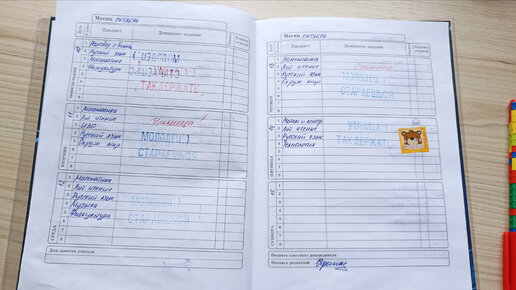 Месяц октябрь
Предмет
Домашнее задание
10
Разговор о важном
Русский язык
Математика
Физкультура
ТАК ДЕРЖАТЬ
11
Математика
Лит чтение
ИЗО
Русский язык
Окруж мир
Умница!
МОЛОДЕЦ!)
СТАРАЕШЬСЯ
ВТОРНИК
12
Математика
Лит чтение
Русский язык
Музыка
Физкультура
МОЛОДЕЦ!)
СТАРАЕШЬСЯ
СРЕДА
Для заметок учителя
Месяц октябрь
Предмет
Домашнее задание
13
Математика
Лит чтение
Русский язык
Окруж мир
Отлично!
МОЛОДЕЦ!)
СТАРАЕШЬСЯ
ЧЕТВЕРГ
14
Лит чтение
Русский язык
Технология
УМНИЦА!
ТАК ДЕРЖАТЬ
ПЯТНИЦА
15
СУББОТА
Подпись классного руководителя
Подпись родителей